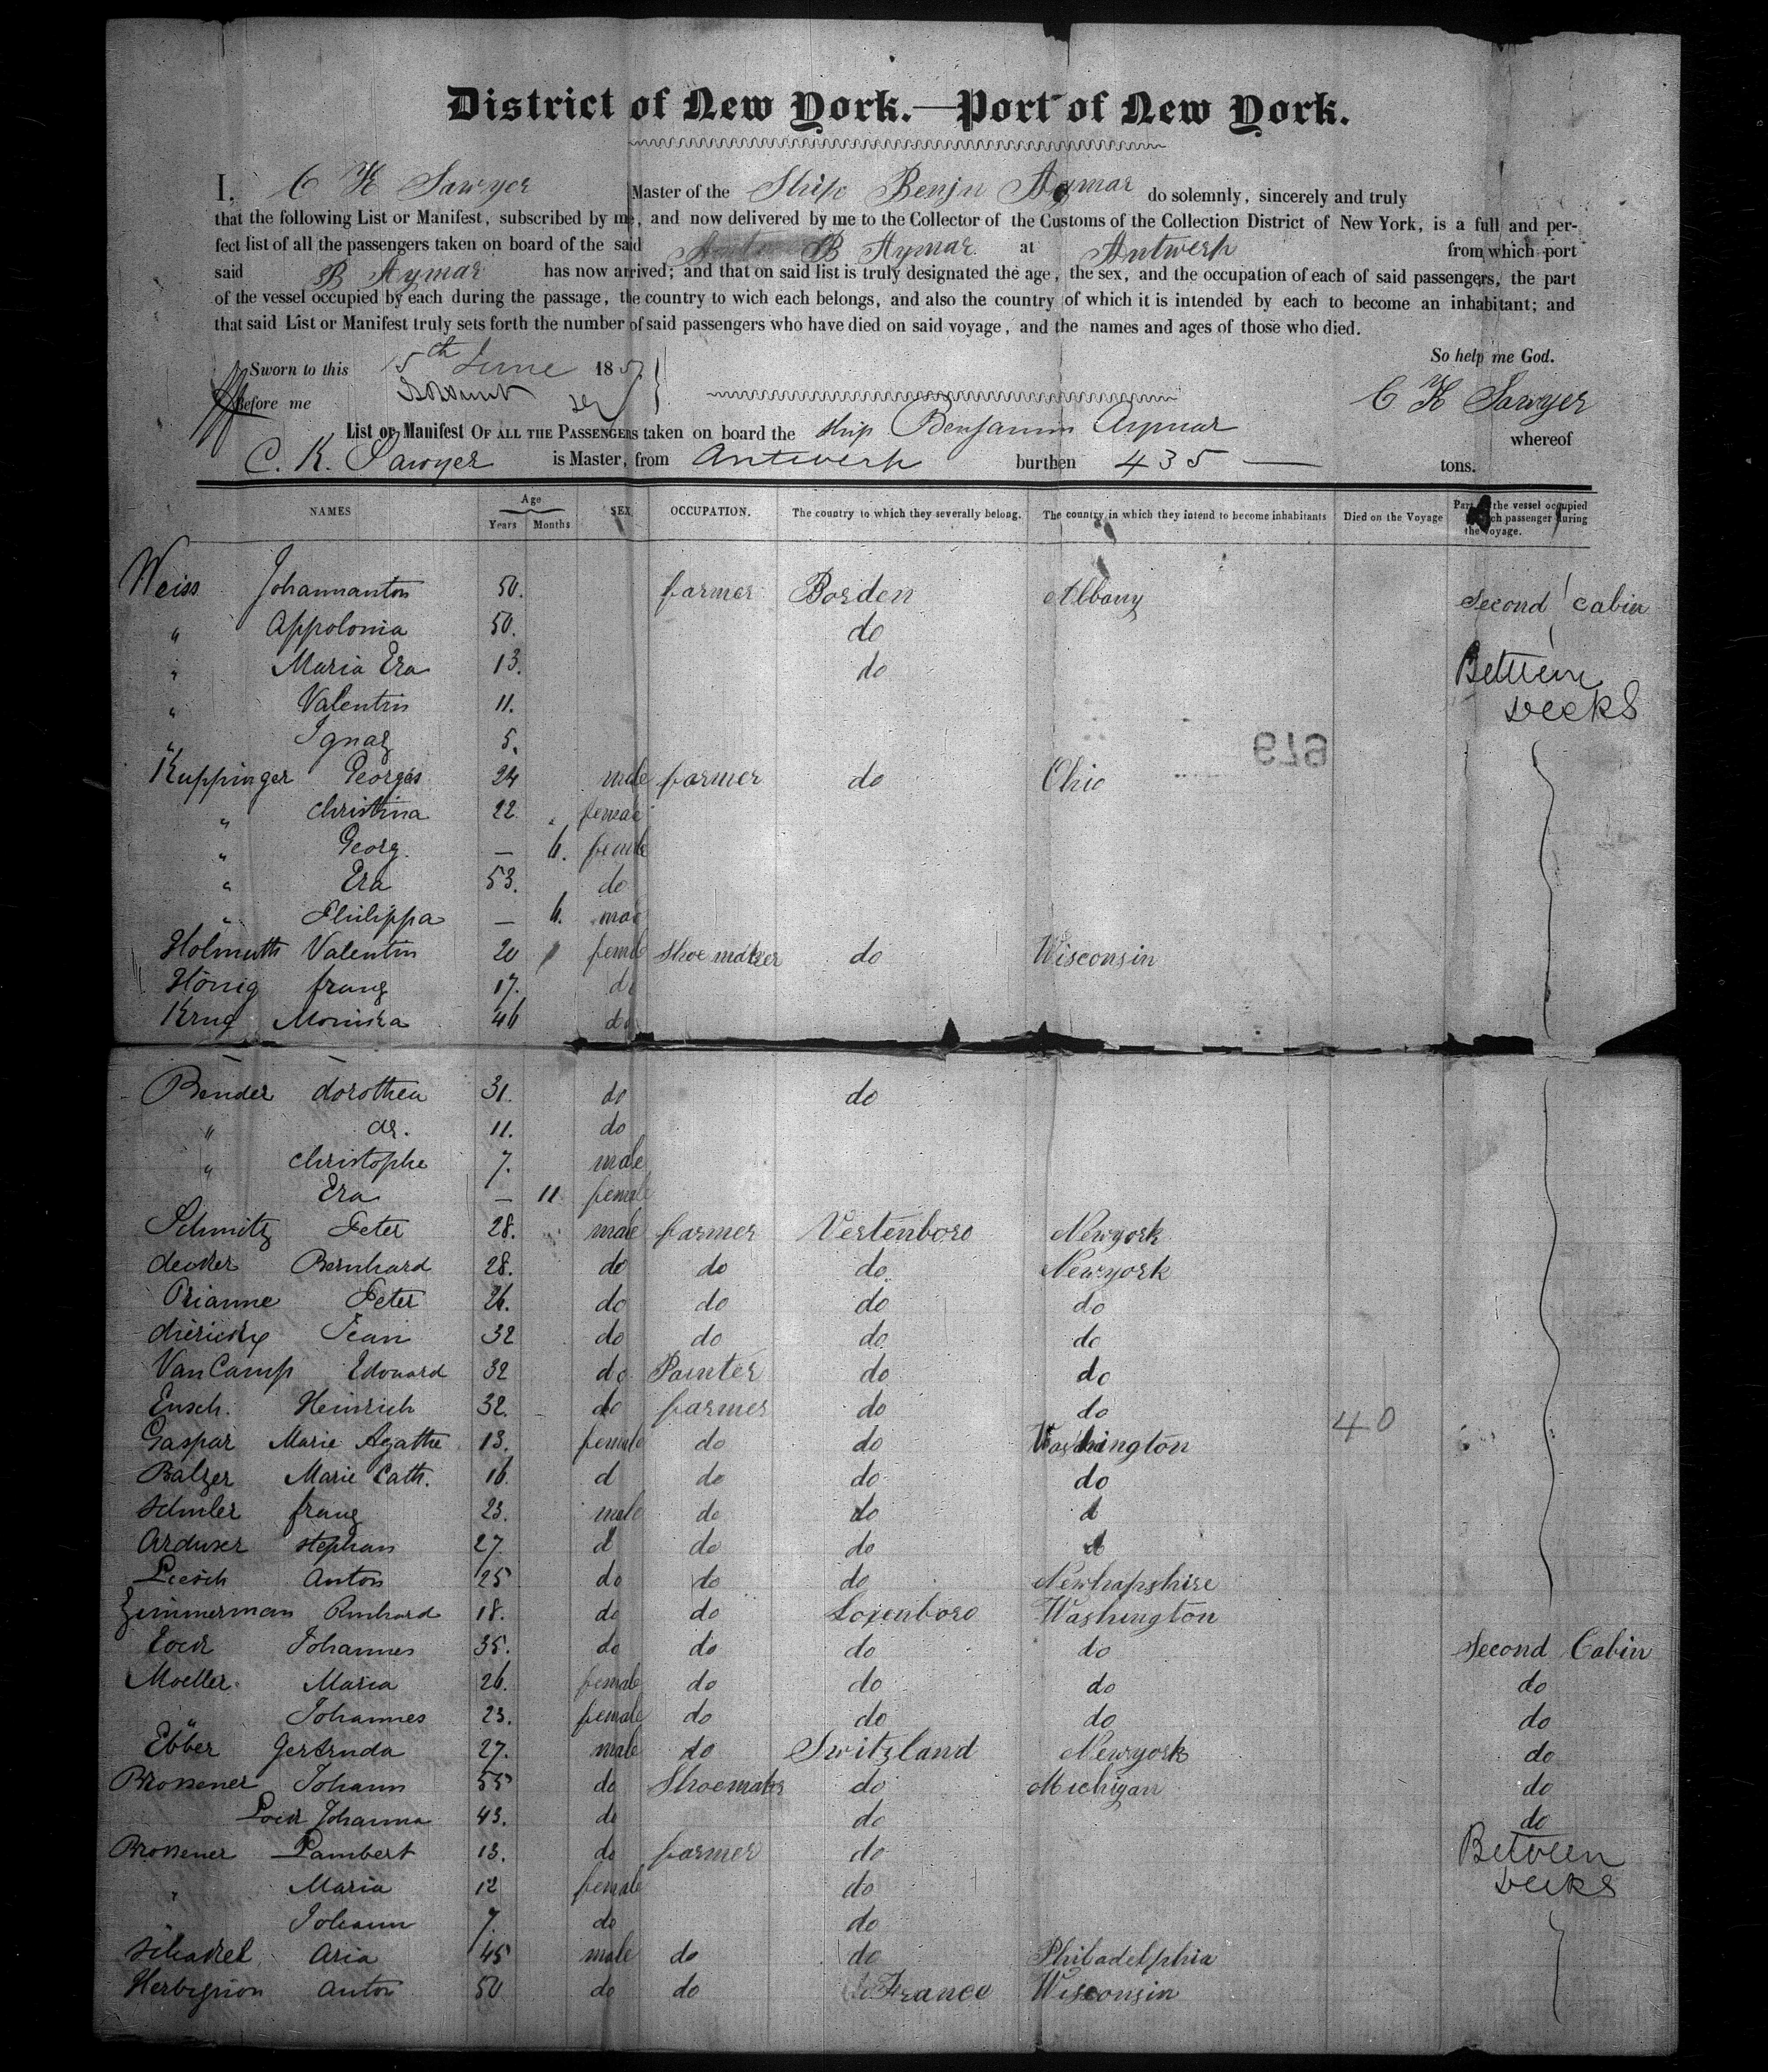 District of New York.—Port of New York.
I, C K Sawyer Master of the Ship Benjn Aymar do solemnly, sincerely and truly
that the following List or Manifest, subscribed by me, and now delivered by me to the Collector of the Customs of the Collection District of New York, is a full and per-
fect list of all the passengers taken on board of the said B Aymar at Antwerp from which port
said B Aymar has now arrived; and that on said list is truly designated the age, the sex, and the occupation of each of said passengers, the part
of the vessel occupied by each during the passage, the country to wich each belongs, and also the country of which it is intended by each to become an inhabitant; and
that said List or Manifest truly sets forth the number of said passengers who have died on said voyage, and the names and ages of those who died.
So help me God.
Sworn to this 5th June 185
Before me
C K Sawyer
List or Manifest OF ALL THE PASSENGERS taken on board the ship Benjamin Aymar whereof
C. K. Sawyer is Master, from Antwerp burthen 435 — tons.
NAMES Age Years Months SEX OCCUPATION. The country to which they severally belong. The country in which they intend to become inhabitants Died on the Voyage Part of the vessel occupied by each passenger during the voyage.
Weiss Johannanton 50. farmer Borden Albany Second Cabin
" Appolonia 50. do
" Maria Era 13. do Between
" Valentin 11. Decks
" Ignaz 5.
679
Kuppinger Georges 24 male farmer do Ohio
" christina 22. female
" Georg. — 6. female
" Era 53. do
" Philippa — 6. male
Holmuth Valentin 20 female Shoemaker do Wisconsin
Hönig franz 17. do
Krug Monika 46 do
Bender dorothea 31. do do
" do. 11. do
" christophe 7. male
Era — 11 female
Schmitz Peter 28. male farmer Vertenboro Newyork
decker Bernhard 28. do do do Newyork
Prianne Peter 26. do do do do
Jean 32 do do do do
VanCamp Edouard 32 do Painter do do
Ensch. Heinrich 32. do farmer do do
40
Gaspar Marie Agathe 13. female do do Washington
Balzer Marie Cath. 16. d do do do
Schuler franz 23. male do do d
Arduser stephan 27 d do do d
Loesch Anton 25 do do do Newhapshire
Zimmerman Reinhard 18. do do Loxenboro Washington
Lock Johannes 35. do do do do Second Cabin
Moeller Maria 26. female do do do do
" Johannes 23. female do do do do
Ebber Gertruda 27. male do Switzland Newyork do
Brossener Johann 55 do Shoemaker do Michigan do
Lock Johanna 43. do do do
Brossener Lambert 13. do farmer do Between
" Maria 12 female do Decks
Johann 7. do do
Schakel Aria 45 male do do Philadelphia
Herbignion Anton 50 do do France Wisconsin